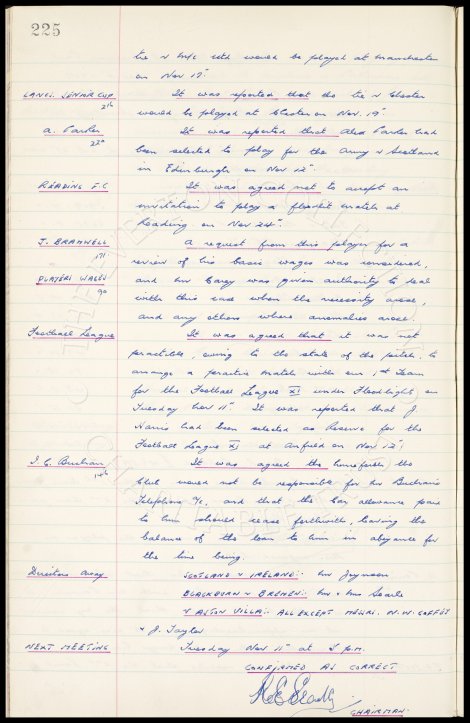 225
tie v M/c Utd would be played at Manchester
on Nov 17th
LANCS. SENIOR CUP
216
It was reported that the tie v Chester
would be played at Chester on Nov. 19th
A. Parker
220
It was reported that Alex Parker had
been selected to play for the Army v Scotland
in Edinburgh on Nov 12th
READING F.C
It was agreed not to accept an
invitation to play a floodlit match at
Reading on Nov 24th
J. BRAMWELL
171
A request from this player for a
review of his basic wages was considered,
PLAYERS WAGES
90
and Mr Carey was given authority to deal
with this case when the necessity arose,
and any others where anomalies arose
Football League
It was agreed that it was not
practicable, owing to the state of the pitch, to
arrange a practice match with our 1st Team
for the Football League XI under Floodlights on
Tuesday Nov 11th. It was reported that J.
Harris had been selected as Reserve for the
Football League XI at Anfield on Nov 12th
I. C. Buchan
It was agreed tha henceforth the
Club would not be responsible for Mr Buchan's
Telephone a/c, and that the Car allowance paid
to him should cease forthwith, leaving the
balance of the loan to him in abeyance for
the time being.
Directors away
SCOTLAND v IRELAND:- Mr Joynson
BLACKBURN & BREMEN:- Mr & Mrs Searle
v ASTON VILLA:- ALL EXCEPT MESSRS. N.W. COFFEY
& J. Taylor
NEXT MEETING
Tuesday Nov 11th at 5 p.m.
CONFIRMED AS CORRECT
CHAIRMAN.